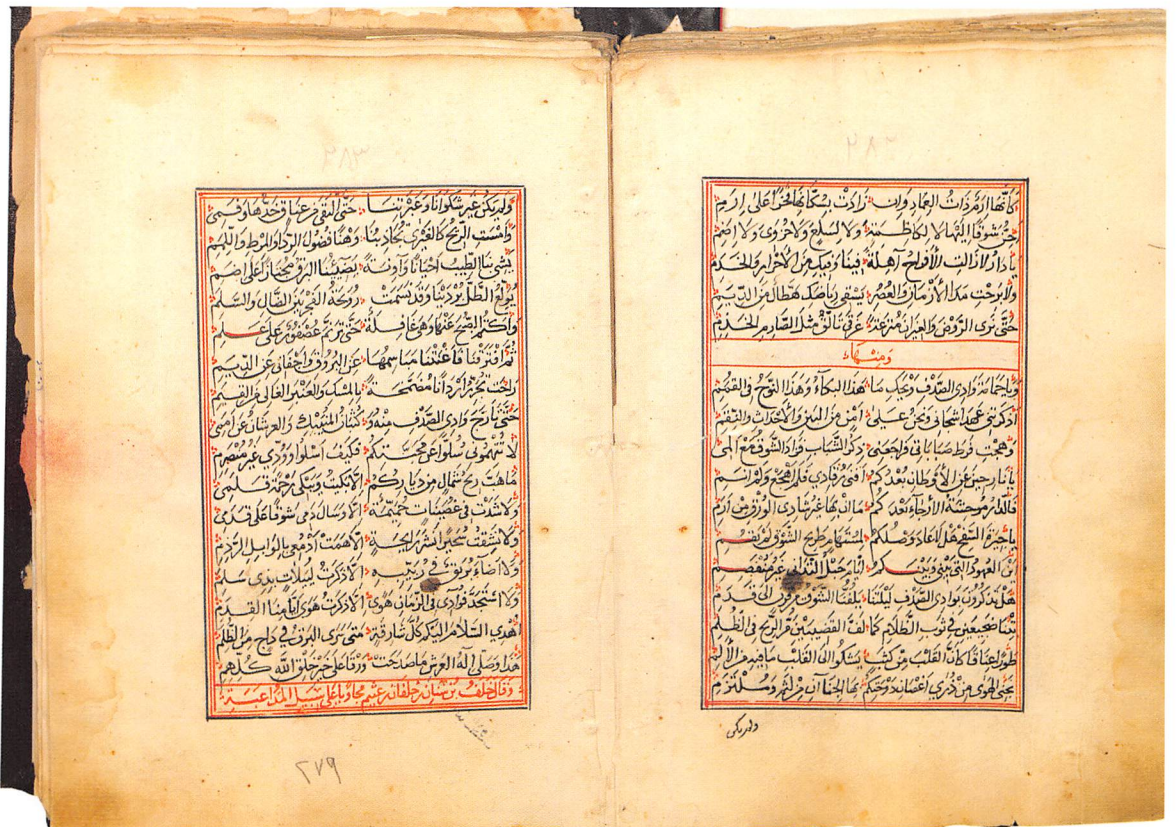 ٢٨٢
كأنها ارم ذات العماد وان زادت بسكانها فخرا على ارم
حتى شوقا اليها لا لكاظمة ولا لسلع ولا حزوى ولا اضم
يا دار لا زالت الأفراح آهلة فينا وفيك من الاحرام والخدم
ولا برحت مدا الأزمان والعصر يسقي رياضك هطال من الديم
حتى نرى الروض والغيران مترعة غرقى تألق مثل الصارم الخذم
ومنها
ويا حمامة وادي الصدف ويحك ما هذا البكاء وهذا النوح في القمم
أذكرتني عهد اشجاني ونحن على أمن من البين والأحداث والنقم
وهجت فرط صباباتي وراجعني ذكر الشباب وزاد الشوق مع المي
يا نازحين عن الأوطان بعدكم أفنى رقادي فلم أهجع ولم أنم
فالدار موحشة الأرجاء بعدكم ما ان بها غير شادي الورق من ارم
يا جيرة السفح هل عاد وصلكم لمستهام طريح الشوق لم يقم
أين العهود التي بيني وبينكم أيام حبل التداني غير منفصم
هل تذكرون بوادي الصدف ليلتنا يلفنا الشوق من فرق الى قدم
بتنا ضجيعين في ثوب الظلام كما لف القضيبين مر الريح في الظلم
طورا عناقا كأن القلب من كثب يشكو الى القلب ما فيه من الألم
يجني الهوى من ذرى أغصان دوحتكم بها الجنا آن من لثم وملتزم
ولم يكن
٢٨٣
ولم يكن غير شكوانا وعبرتنا حتى التقى من عتاب خدها وفمي
وأمست الريح كالغيرى تجاذبنا وهنا فضول الردا والمرط واللمم
يشي بنا الطيب احيانا وآونة يضيئنا البرق مجتازا على اضم
يولع الطل بردينا وقد نسمت رويحة الفجر بين الضال والسلم
وأكتم الصبح عنها وهي غافلة حتى ترنم عصفور على علم
ثم افترقنا فأغنتنا مباسمها عن البروق وأجفاني عن الديم
راحت تجرر أردانا مضمخة بالمسك والعنبر الغالي من القيم
حتى تأرج وادي الصدف منه وكثبان
لا تتهموني سلوا عن محبتكم فكيف اسلوا وودي غير منصرم
ما هبت ريح شمال من دياركم الا بكت وبكى رحمة قلمي
ولا شدت في غصينات حميمة الا وسال دمي شوقا على قدمي
ولا نشقت سحيرا نشر الا همت أدمعي بالوابل الرذم
ولا أضاء بريق في الا ذكرت ليلات بذي سلم
ولا استجد فؤادي في الزمان هوى الا ذكرت هوى أيامنا القدم
أهدي السلام اليكم كل شارقة متى سرى البرق في داج من الظلم
هذا وصلى إله العرش ما صدحت ورقا على خير خلق الله كلهم
وقال خلف بن سنان بن خلفان بن عثيم مجاوبا على سبيل المداعبة
٢٧٩